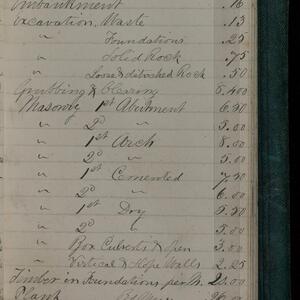 Embankment .16
Excavation, Waste .13
" Foundations .25
" Solid Rock .75
" Loose & detached Rock .50
Grubbing & Clearing 5.400
Masonry 1st Abutment 6.50
" 2d " 5.00
" 1st Arch 8.00
" 2d " 5.00
" 1st Cemented 7.50
" 2d " 6.00
" 1st Dry 5.50
" 2d " 5.00
" Box Culverts & Pen 3.00
" Vertical & Slope Walls 2.25
Timber in Foundations per M. 20.00
Plank